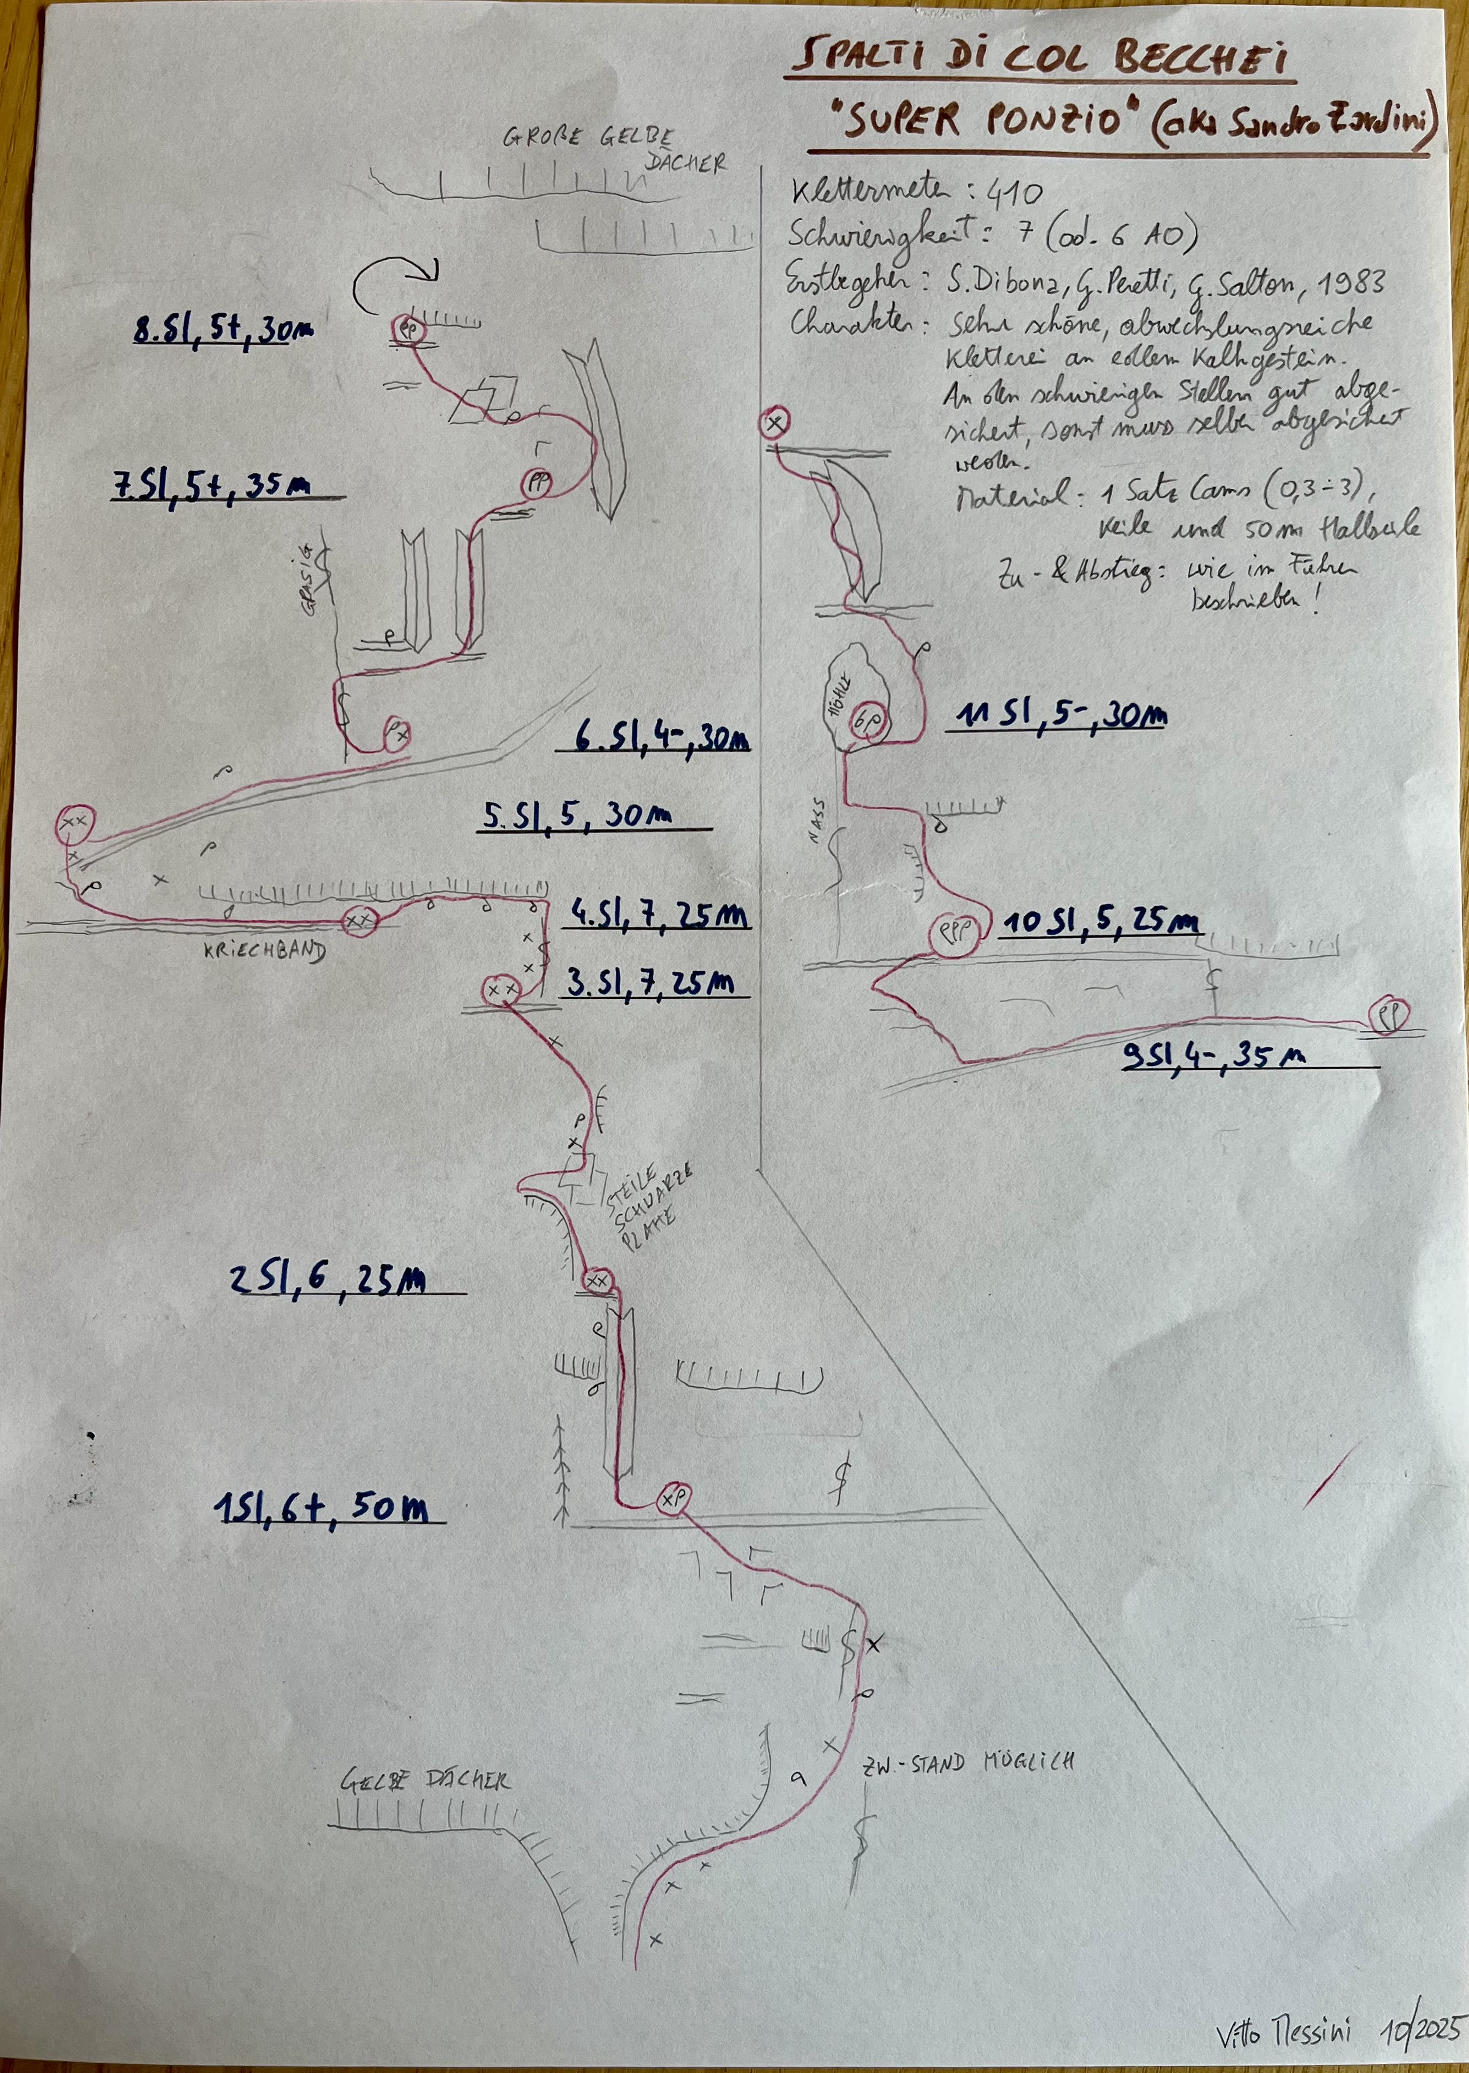 SPALTI DI COL BECCHEI
"SUPER PONZIO" (aka Sandro Zardini)
GROßE GELBE
DÄCHER
Klettermeter: 410
Schwierigkeit: 7 (od. 6 A0)
Erstbegeher: S. Dibona, G. Peretti, G. Salton, 1983
Charakter: Sehr schöne, abwechslungsreiche
Kletterei an edlem Kalkgestein.
An den schwierigen Stellen gut abge-
sichert, sonst muss selber abgesichert
werden.
Material: 1 Satz Cams (0,3÷3),
Keile und 50m Halbseile
Zu- & Abstieg: wie im Führer
beschrieben!
PP
8.Sl, 5+, 30m
PP
7.Sl, 5+, 35m
GRASIG
P
PX
6.Sl, 4-, 30m
XX
5.Sl, 5, 30m
XX
4.Sl, 7, 25m
KRIECHBAND
XX
3.Sl, 7, 25m
STEILE
SCHWARZE
PLATTE
XX
2Sl, 6, 25m
XP
1Sl, 6+, 50m
GELBE DÄCHER
ZW.-STAND MÖGLICH
X
HÖHLE
11 Sl, 5-, 30m
NASS
PPP
10 Sl, 5, 25m
PP
9Sl, 4-, 35m
Vitto Messini 10/2025